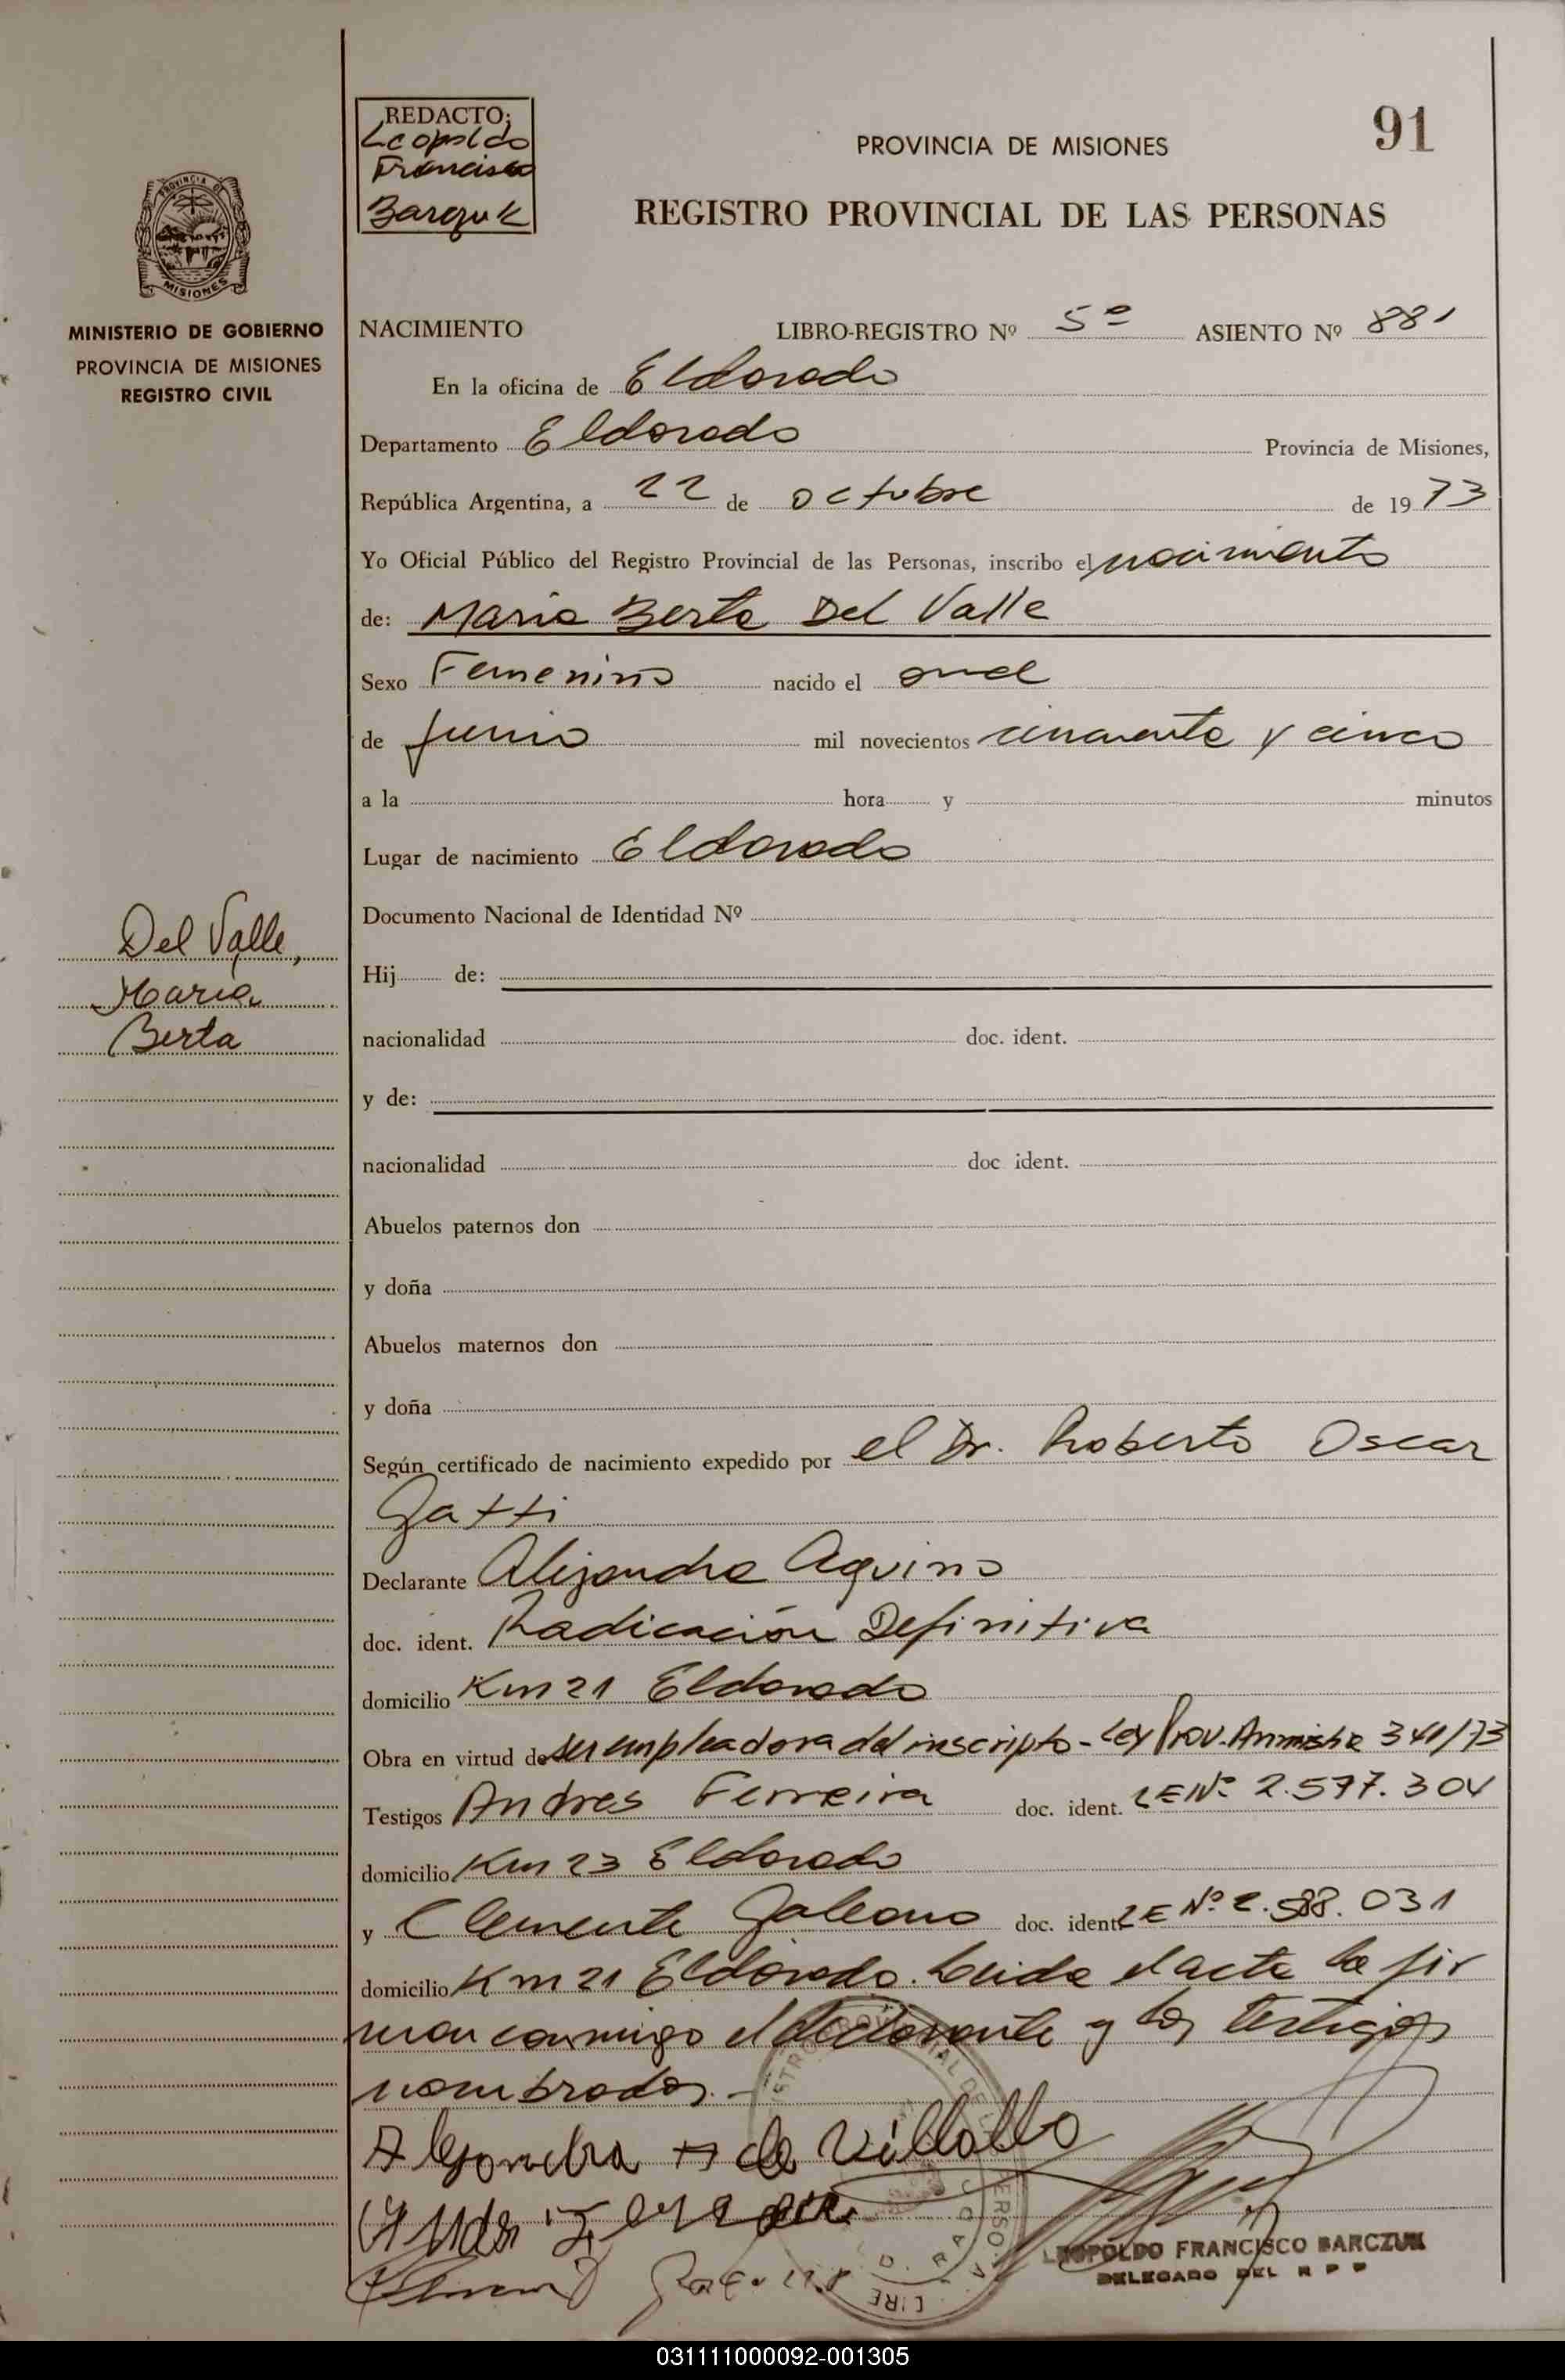 REDACTO:
Leopoldo
Francisco
Barczuk
91
PROVINCIA DE MISIONES
REGISTRO PROVINCIAL DE LAS PERSONAS
PROVINCIA DE
MISIONES
MINISTERIO DE GOBIERNO
PROVINCIA DE MISIONES
REGISTRO CIVIL
NACIMIENTO LIBRO-REGISTRO Nº 5º ASIENTO Nº 881
En la oficina de Eldorado
Departamento Eldorado Provincia de Misiones,
República Argentina, a 22 de octubre de 1973
Yo Oficial Público del Registro Provincial de las Personas, inscribo el nacimiento
de: María Berta Del Valle
Sexo Femenino nacido el once
de junio mil novecientos cincuenta y cinco
a la hora y minutos
Lugar de nacimiento Eldorado
Documento Nacional de Identidad Nº
Del Valle,
María
Berta
Hij de:
nacionalidad doc. ident.
y de:
nacionalidad doc ident.
Abuelos paternos don
y doña
Abuelos maternos don
y doña
Según certificado de nacimiento expedido por el Dr. Roberto Oscar
Gatti
Declarante Alejandra Aquino
doc. ident. Radicación Definitiva
domicilio Km 21 Eldorado
Obra en virtud de ser empleadora del inscripto - Ley Prov. Amnistía 341/73
Testigos Andres Ferreira doc. ident. LE Nº 2.597.304
domicilio Km 23 Eldorado
y Clemente Galeano doc. ident. LE Nº 2.588.031
domicilio Km 21 Eldorado. Leida el acta la fir
man conmigo el declarante y los testigos
nombrados.-
Alejandra A de Villalba
LEOPOLDO FRANCISCO BARCZUK
DELEGADO DEL R P P
031111000092-001305